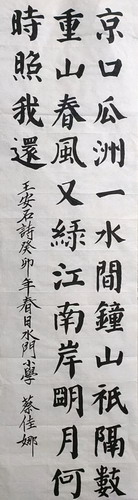 京口瓜洲一水間鐘山祇隔數
重山春風又綠江南岸明月何
時照我還
王安石詩癸卯年春日水門小學 蔡佳娜